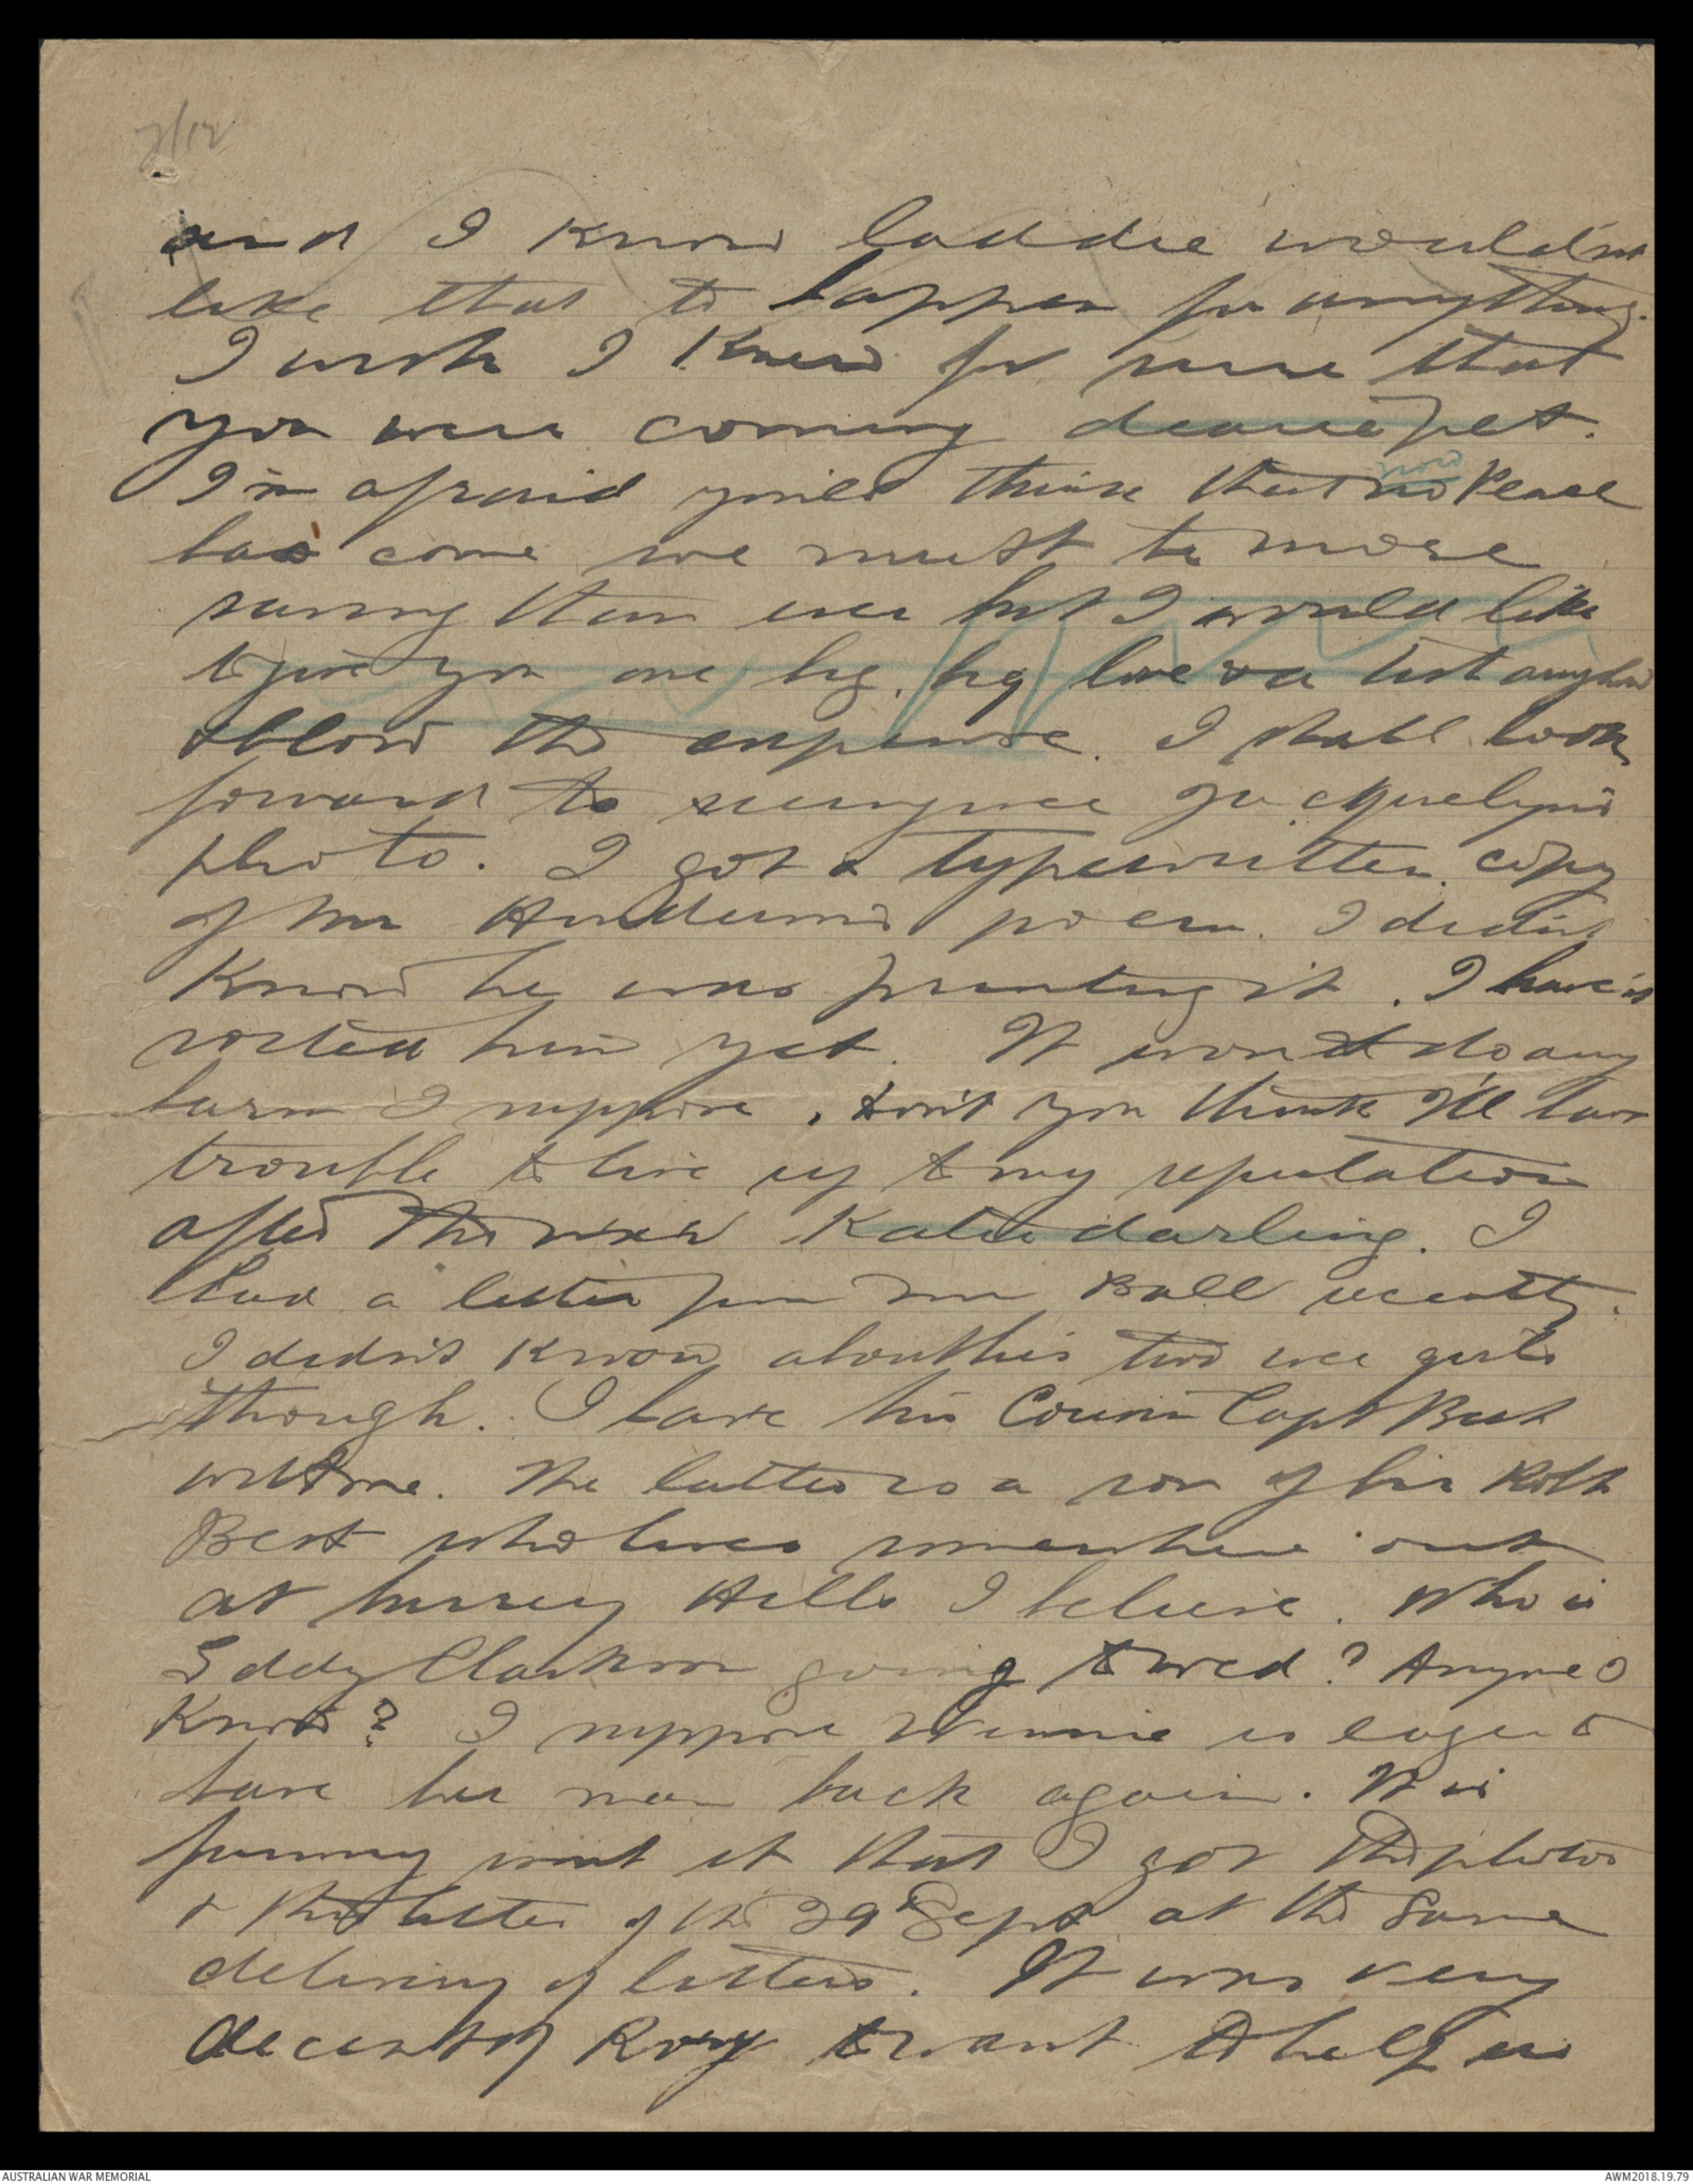 2/12
and I know laddie wouldn't
like that to happen for anything.
I wish I knew for sure that
you were coming dearie pet.
I'm afraid you'll think that now Peace
has come we must be more
saving than ever but I would like
to give you one big, big love of a test anyhow
& blow the expense. I shall look
forward to seeing wee Jacquelyn's
photo. I got a typewritten copy
of Mr Henderson's poem. I didn't
know he was printing it. I haven't
roasted him yet. It won't do any
harm I suppose, don't you think I'll have
trouble to live up to my reputation
after this war Katie darling. I
had a letter from Mr Ball recently.
I didn't know about his two wee girls
though. I have his Cousin Capt Best
with me. The latter is a son of Sir Robt
Best who lives somewhere out
at Surrey Hills I believe. Who is
Eddy Clarkson going to wed? Anyone I
know? I suppose Winnie is eager to
have her man back again. It is
funny isn't it that I got the photos
& the letter of the 29th Sept at the same
delivery of letters. It was very
decent of Roy to want to help us
AUSTRALIAN WAR MEMORIAL
AWM2018.19.79